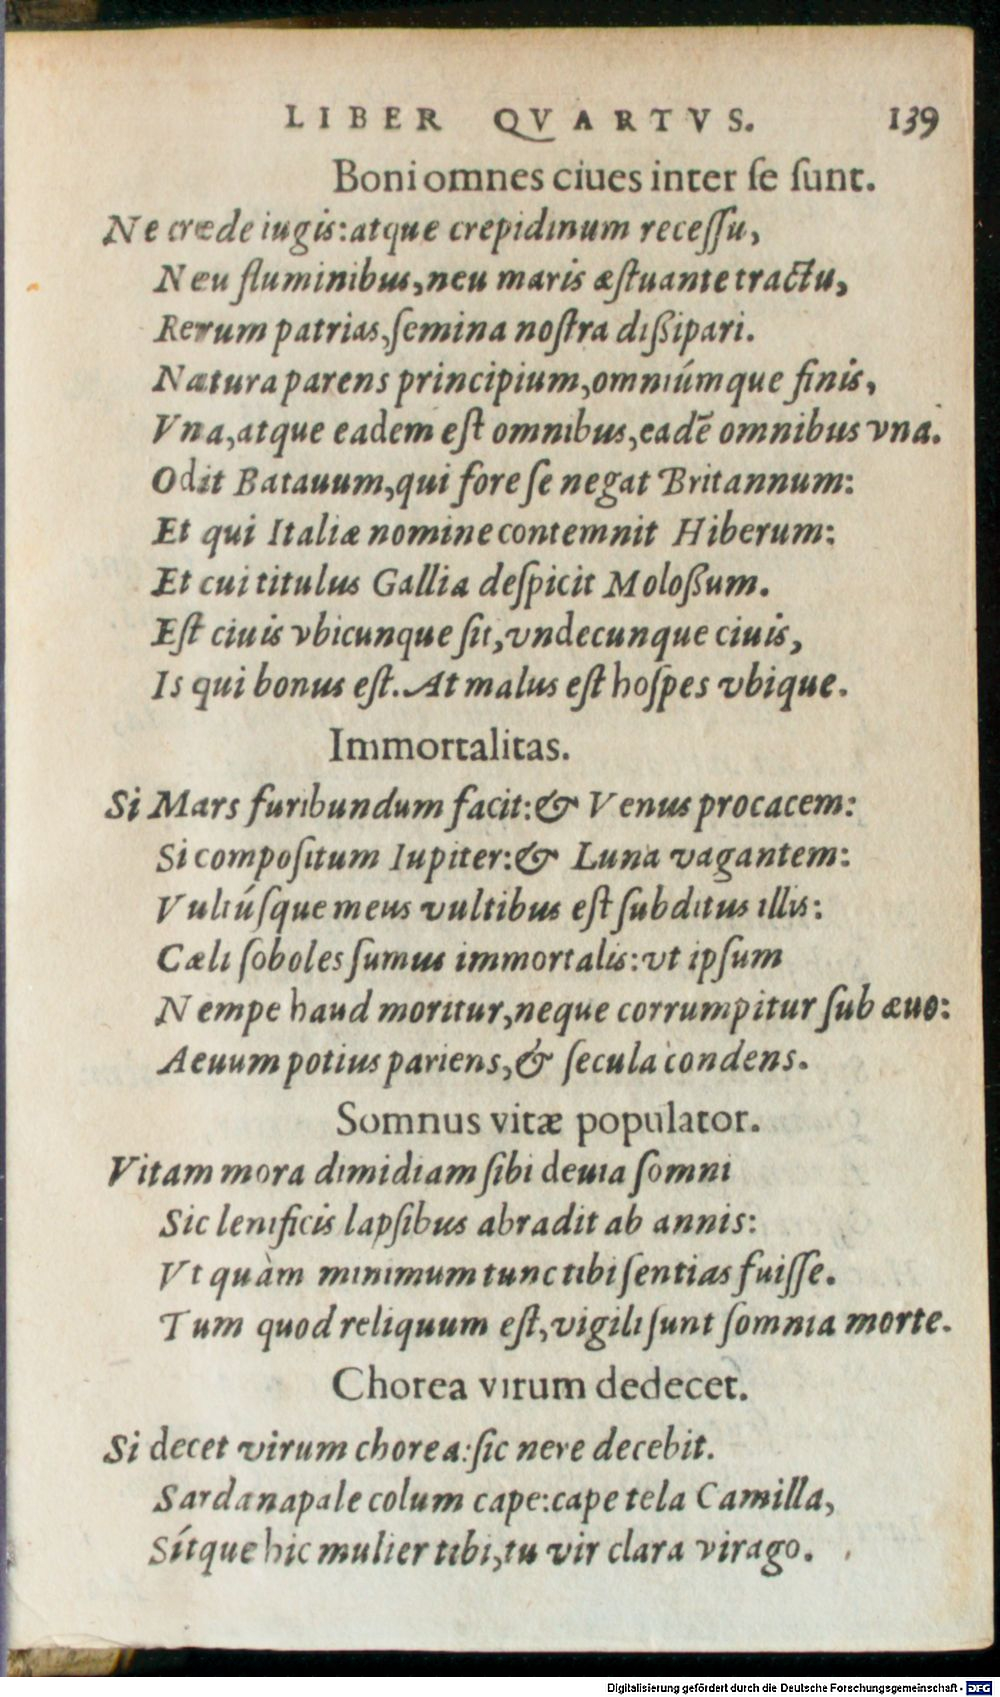 LIBER QVARTVS. 139
Boni omnes ciues inter ſe ſunt.
Ne crede iugis: atque crepidinum receſſu,
Neu fluminibus, neu maris æſtuante tractu,
Rerum patrias, ſemina noſtra dißipari.
Natura parens principium, omniúmque finis,
Vna, atque eadem eſt omnibus, eadē omnibus vna.
Odit Batauum, qui fore ſe negat Britannum:
Et qui Italiæ nomine contemnit Hiberum:
Et cui titulus Gallia deſpicit Moloßum.
Eſt ciuis vbicunque ſit, vndecunque ciuis,
Is qui bonus eſt. At malus eſt hoſpes vbique.
Immortalitas.
Si Mars furibundum facit: & Venus procacem:
Si compoſitum Iupiter: & Luna vagantem:
Vultúſque meus vultibus eſt ſubditus illis:
Cæli ſoboles ſumus immortalis: vt ipſum
Nempe haud moritur, neque corrumpitur ſub æuo:
Aeuum potius pariens, & ſecula condens.
Somnus vitæ populator.
Vitam mora dimidiam ſibi deuia ſomni
Sic lenificis lapſibus abradit ab annis:
Vt quàm minimum tunc tibi ſentias fuiſſe.
Tum quod reliquum eſt, vigili ſunt ſomnia morte.
Chorea virum dedecet.
Si decet virum chorea: ſic nere decebit.
Sardanapale colum cape: cape tela Camilla,
Sítque hic mulier tibi, tu vir clara virago.
Digitalisierung gefördert durch die Deutsche Forschungsgemeinschaft - DFG